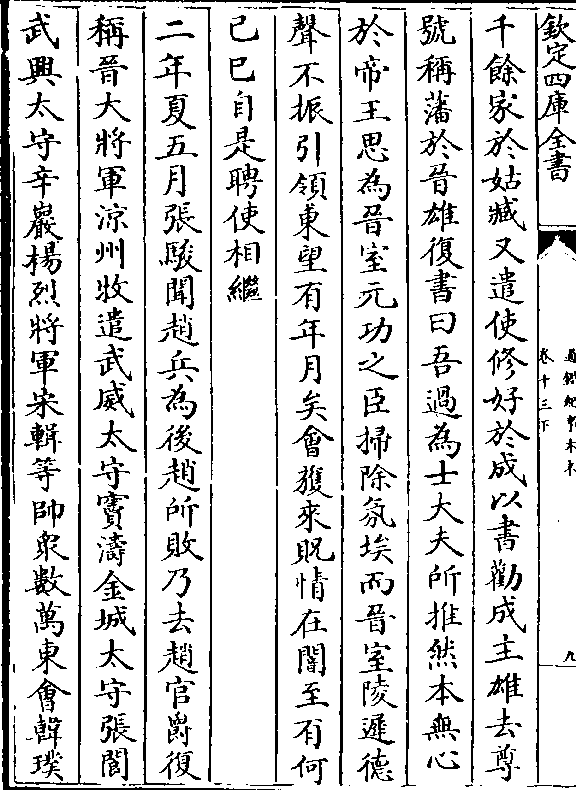 欽定四庫全書
通鑑紀事本末
卷十三下
九
千餘家於姑臧又遣使修好於成以書勸成主雄去尊
號稱藩於晉雄復書曰吾過為士大夫所推然本無心
於帝王思為晉室元功之臣掃除氛埃而晉室陵遲德
聲不振引領東望有年月矣會獲來貺情在闇至有何
已已自是聘使相繼
二年夏五月張駿聞趙兵為後趙所敗乃去趙官爵復
稱晉大將軍涼州牧遣武威太守竇濤金城太守張閬
武興太守辛巖楊烈將軍宋輯等帥衆數萬東會韓璞